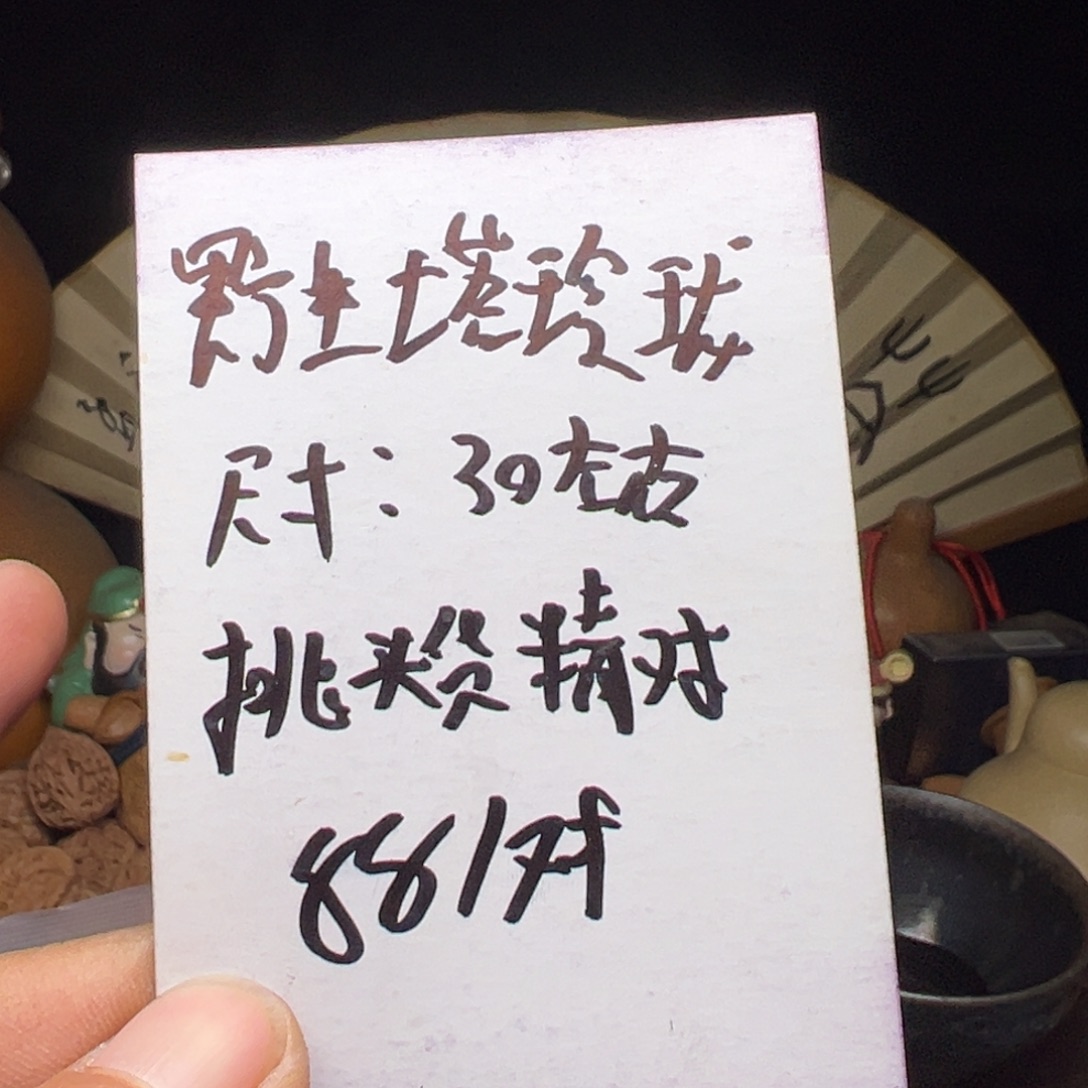 野生塔玲珑
尺寸：30左右
挑头货精对
88/对